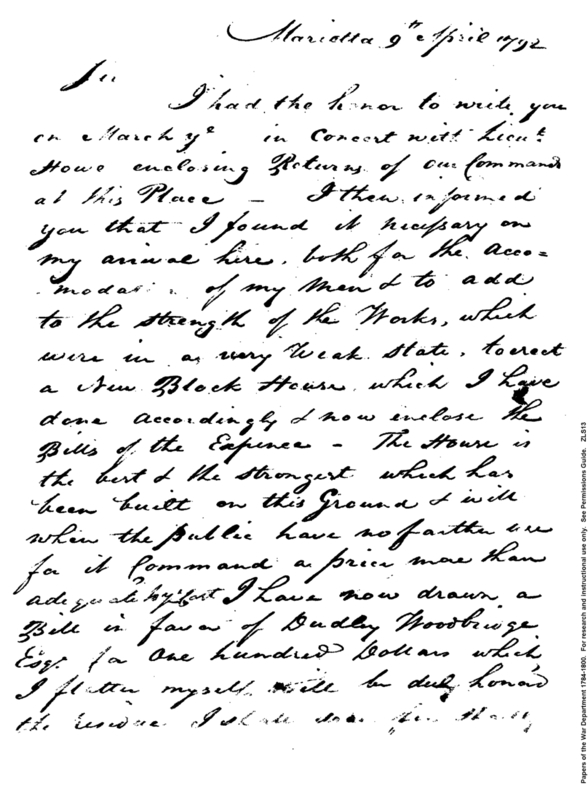 Marietta 9th April 1792
Sir
I had the honor to write you
on March ye in Concert with Lieut
Howe enclosing Returns of our Command
at this Place — I then informed
you that I found it necessary on
my arrival here, both for the Acco=
modati of my Men & to add
to the strength of the Works, which
were in a very Weak State, to erect
a New Block House, which I have
done accordingly & now enclose the
Bills of the Expence — The House is
the best & the strongest which has
been built on this Ground & will
when the public have no farther use
for it Command a price more than
adequate to its Cost I have now drawn a
Bill in favor of Dudley Woodbridge
Esqr for One hundred Dollars which
I flatter myself will be duly honord
the residue I shall
Papers of the War Department 1784-1800. For research and instructional use only. See Permissions Guide. ZLS13